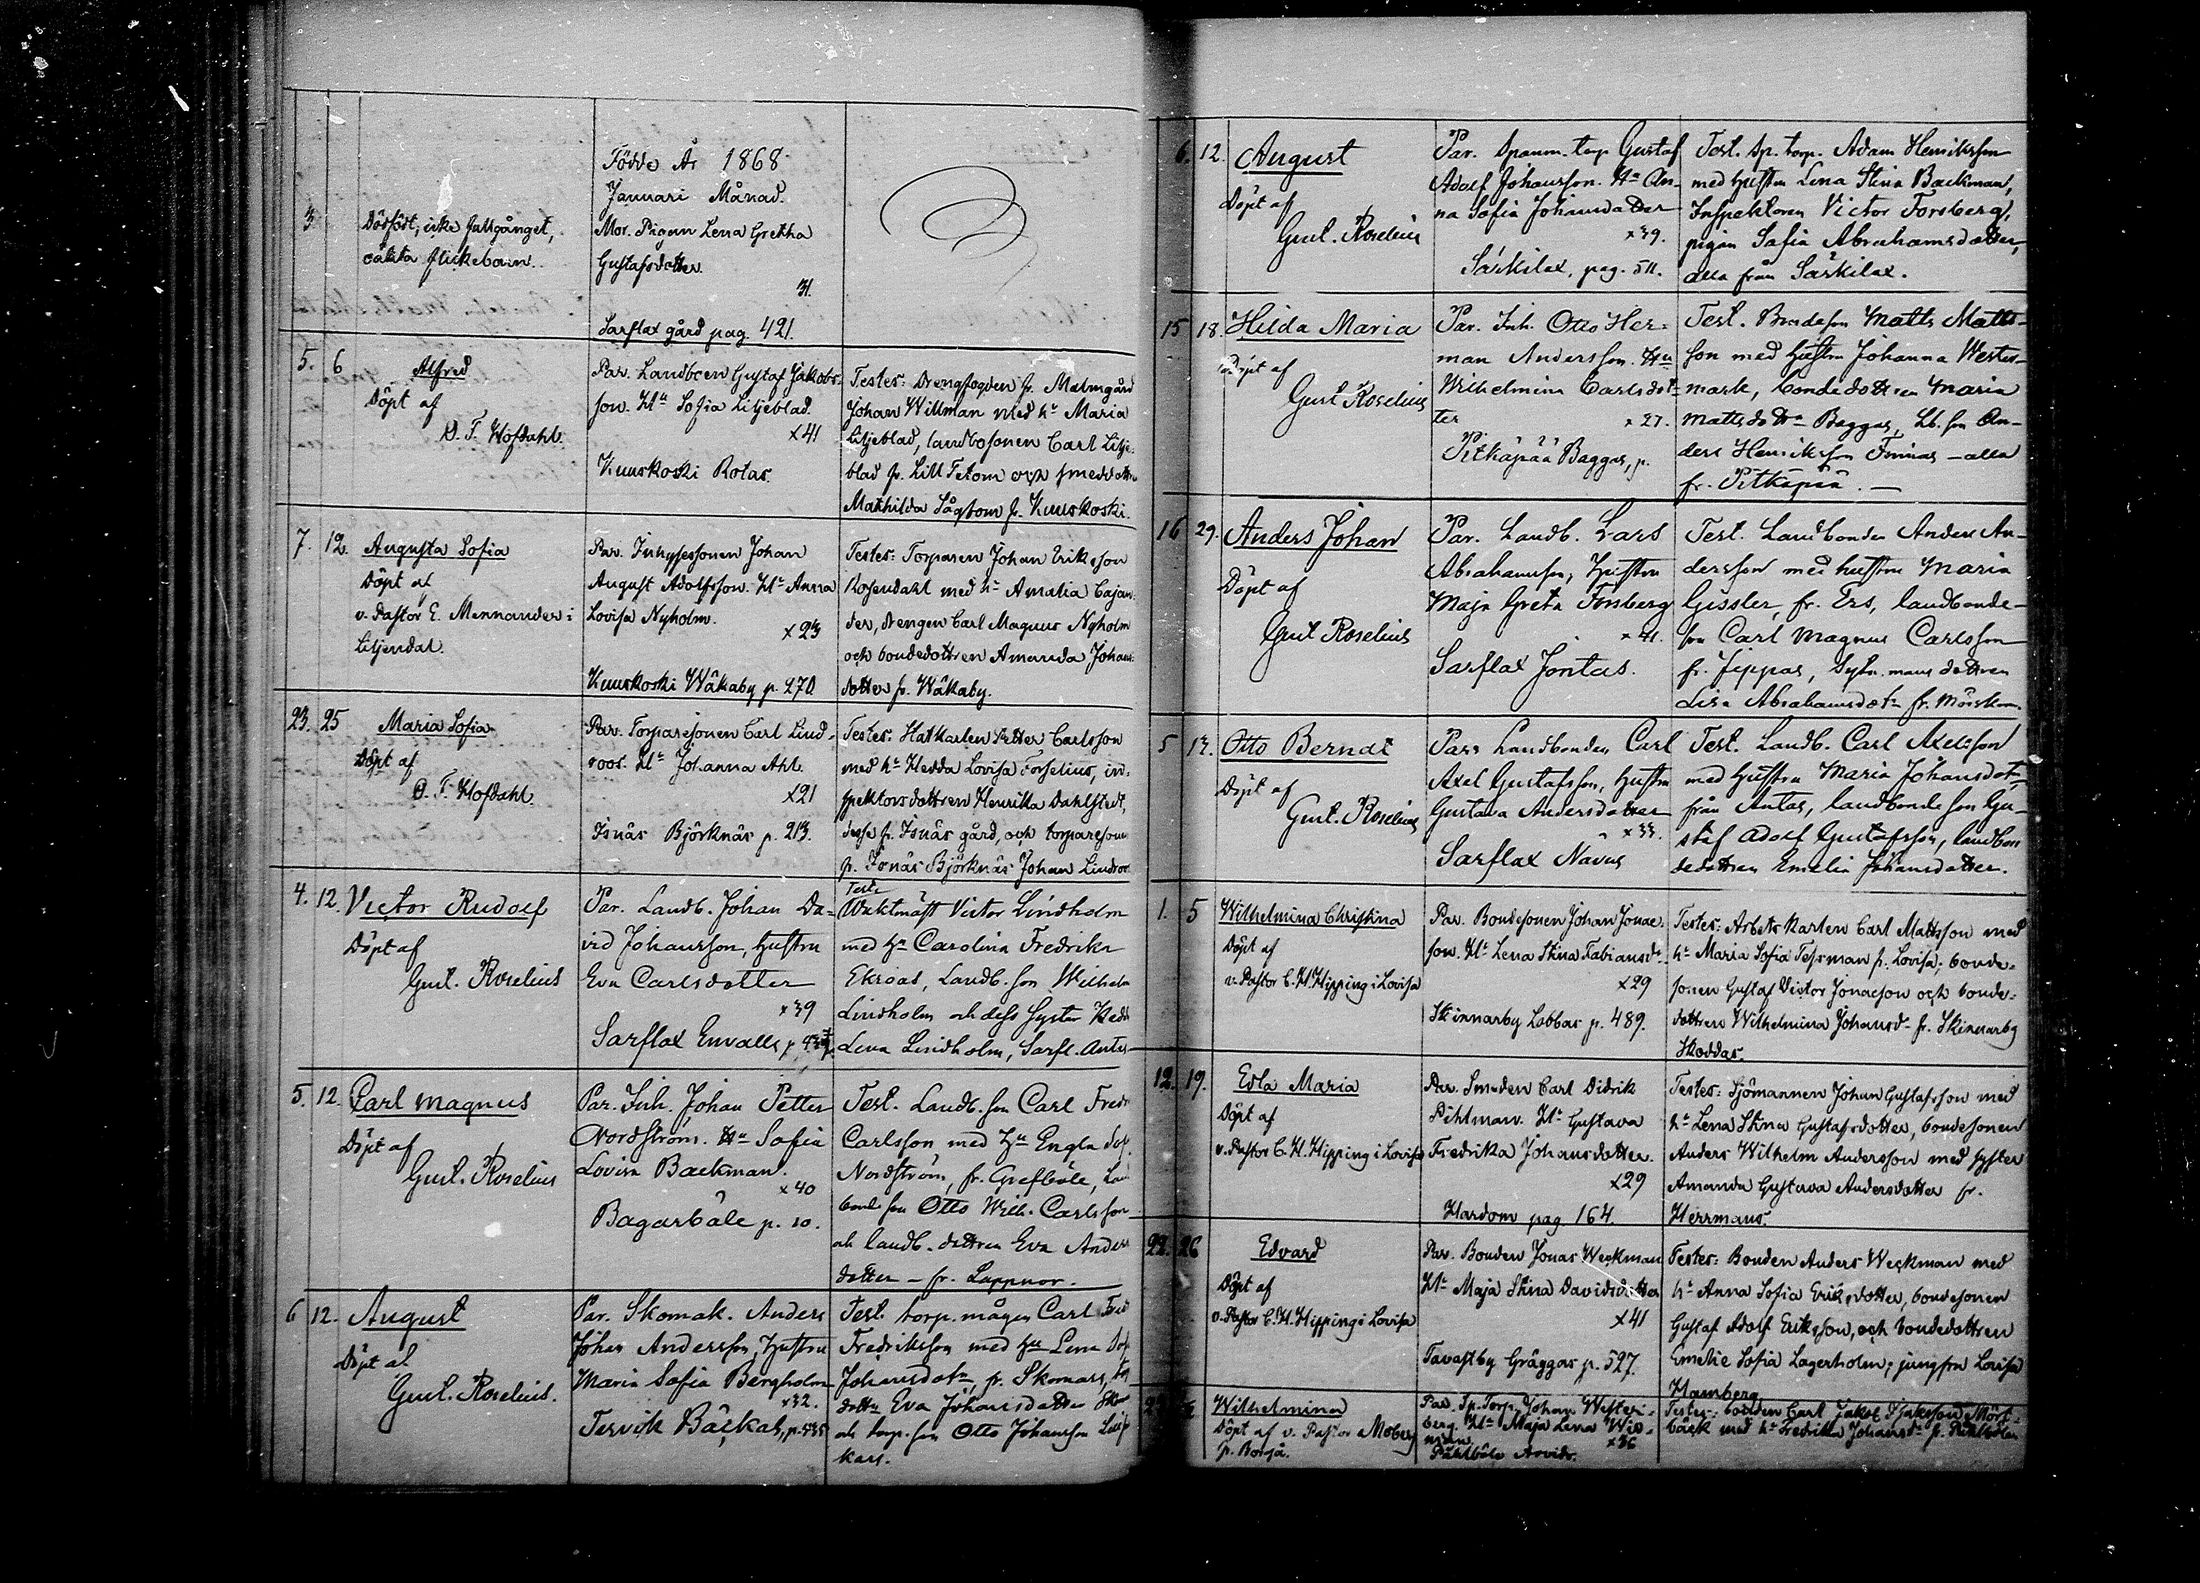 Födde År 1868
Januari Månad.
3
Dödfödt, icke fullgånget,
oäkta flickebarn.
Mor. Pigan Lena Gretha
Gustafsdotter
31.
Sarflax gård pag. 421.
5. 6
Alfred
Döpt af
O. F. Hofdahl.
Par. Landboen Gustaf Jakobs-
son. Hu Sofia Liljeblad.
x41
Kuuskoski Rolas.
Testes: Drengfogden fr. Malmgård
Johan Willman med hu Maria
Liljeblad, landbosonen Carl Lilje-
blad fr. Lill Tetom och smeddottr.
Mathilda Sågbom fr. Kuuskoski.
7. 12.
Augusta Sofia
Döpt af
v. Pastor E. Mennander i
Liljendal.
Par. Inhysessonen Johan
August Adolfsson. Hu Anna
Lovisa Nyholm.
x23
Kuuskoski Wåkaby p. 270
Testes: Torparen Johan Eriksson
Rosendahl med hu Amalia Cajan-
der, drengen Carl Magnus Nyholm
och bondedottren Amanda Johans-
dotter fr. Wåkaby.
23. 25
Maria Sofia
Döpt af
O. F. Hofdahl.
Par. Torparesonen Carl Lind-
roos. Hu Johanna Ahl.
x21
Isnäs Björknäs p. 213.
Testes: Statkarlen Petter Carlsson
med hu Hedda Lovisa Forselius, in-
spektorsdottren Henrika Dahlstedt,
desse fr. Isnäs gård, och torpareson
fr. Isnäs Björknäs Johan Lindroos
4. 12.
Victor Rudolf
Döpt af
Gust. Roselius
Par. Landb. Johan Da-
vid Johansson, hustru
Eva Carlsdotter
x39
Sarflax Envalls p.
Test.
Waktmäst Victor Lindholm
med hu Carolina Fredrika
Ekroos, Landb. son Wilhelm
Lindholm och dess syster Hedd
Lena Lindholm, Sarfl. Antas
5. 12.
Carl Magnus
Döpt af
Gust. Roselius
Par. Inh. Johan Petter
Nordström. Hu Sofia
Lovisa Backman.
x40
Bagarböle p. 10.
Test. Landb. son Carl Fredr
Carlsson med hu Engla Sof.
Nordström, fr. Grefböle, Lan
bond son Otto Wilh. Carlsson
och landb. dottren Eva Anders
dotter – fr. Lappnor.
6 12.
August
Döpt af
Gust. Roselius.
Par. Skomak. Anders
Johan Andersson, hustru
Maria Sofia Bergholm
x32.
Tervik Bäckas, p. 535
Test. torp. mågen Carl Fred
Fredriksson med hu Lena Sof
Johansdotr, fr. Skomars, torp
dottr Eva Johansdotter
och torp. son Otto Johansson
kars.
6. 12.
August
Döpt af
Gust. Roselius
Par. Spanm. torp Gustaf
Adolf Johansson. Hu An-
na Sofia Johansdotter
x39.
Särkilax, pag. 511.
Test. Sp. torp. Adam Henriksson
med hustru Lena Stina Backman,
Inspektoren Victor Forsberg,
pigan Sofia Abrahamsdotter,
alla från Särkilax.
15 18.
Hilda Maria
Döpt af
Gust Roselius
Par. Inh. Otto Her-
man Andersson. Hu
Wilhelmina Carlsdot-
ter
x27.
Pitkäpää Baggas, p.
Test. Bondeson Matts Matts-
son med hustru Johanna Wester-
mark, bondedottren Maria
Mattsdotr Baggas, Lb. son An-
ders Henriksson Finnas – alla
fr. Pitkäpää. –
16 29.
Anders Johan
Döpt af
Gust Roselius
Par. Landb. Lars
Abrahamson, hustru
Maja Greta Forsberg
x41.
Sarflax Jontas.
Test. Landbonden Anders An-
dersson med hustru Maria
Gissler, fr. Ers, landbonde-
son Carl Magnus Carlsson
fr. Jeppas, Sytn. mans dottren
Lisa Abrahamsdotr fr. Mörskom
5 12.
Otto Berndt
Döpt af
Gust. Roselius
Par. Landbonden Carl
Axel Gustafsson, hustru
Gustava Andersdotter
x33.
Sarflax Navus
Test. Landb. Carl Axelsson
med hustru Maria Johansdotr
från Antas, landbonde son Gu-
staf Adolf Gustafsson, landbon
dedottren Emelia Johansdotter.
1. 5
Wilhelmina Christina
Döpt af
v. Pastor C. H. Hipping i Lovisa
Par. Bondesonen Johan Jonae-
son. Hu Lena Stina Fabiansdr.
x29
Skinnarby Lobbas p. 489.
Testes: Arbets karlen Carl Mattsson med
hu Maria Sofia Tessman fr. Lovisa; bonde-
sonen Gustaf Victor Jonaeson och bonde-
dottren Wilhelmina Johansdr fr. Skinnarby
Skoddas.
12. 19.
Edla Maria
Döpt af
v. Pastor C. H. Hipping i Lovisa
Par. Smeden Carl Didrik
Pihlman. Hu Gustava
Fredrika Johansdotter.
x29
Hardom pag 164.
Testes: Sjömannen Johan Gustafsson med
hu Lena Stina Gustafsdotter, bondesonen
Anders Wilhelm Andersson med syster
Amanda Gustava Andersdotter fr.
Herrmans.
22. 26
Edvard
Döpt af
v. Pastor C. H. Hipping i Lovisa
Par. Bonden Jonas Weckman
Hu Maja Stina Davidsdotter
x41
Tavastby Gräggas p. 527.
Testes: Bonden Anders Weckman med
hu Anna Sofia Eriksdotter, bondesonen
Gustaf Adolf Eriksson, och bondedottren
Emelie Sofia Lagerholm; jungfru Lovisa
Hamberg.
Wilhelmina
Döpt af v. Pastor Moberg
fr. Borgå.
Par. Sp. Torp. Johan Wester-
berg. Hu Maja Lena Wid-
man
x36
Påhlböle Arvids.
Testes: bonden Carl Jakob Isaksson
bäck med hu Fredrika Johansdr fr. Påhlböle